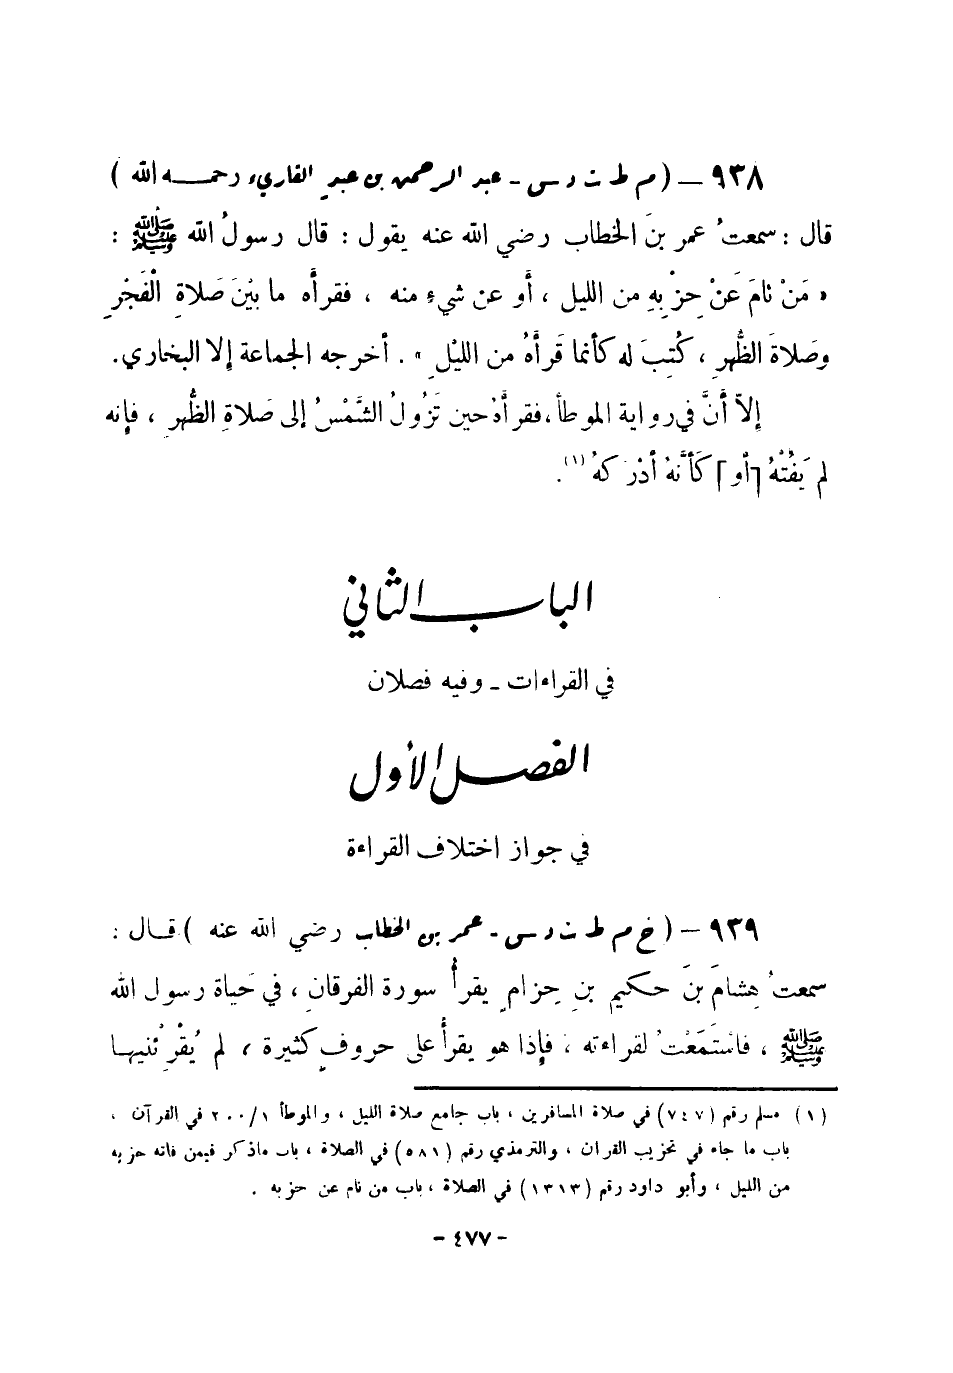 ٩٣٨ – ( م ط ت د س - عبد الرحمن بن عبدٍ القاريء رحمـــه الله )
قال : سمعتُ عمر بنَ الخطاب رضي الله عنه يقول : قال رسولُ الله ﷺ :
« مَنْ نامَ عَنْ حِزْبِهِ من الليل ، أو عن شيءٍ منه ، فقرأه ما بيْنَ صَلاةِ الْفَجْرِ
وصَلاةَ الظُّهرِ ، كُتِبَ له كأنما قَرأَهُ من الليْلِ » . أخرجه الجماعة إلا البخاري.
إلاّ أنَّ في رواية الموطأ، فقرأهُ حين تَزُولُ الشَّمْسُ إلى صَلاةِ الظُّهرِ ، فإنه
لم يَفُتْهُ [أو] كَأنَّهُ أدْرَكهُ (١) .
الباب الثاني
في القراءات - وفيه فصلان
الفصل الأول
في جواز اختلاف القراءة
٩٣٩ – ( خ م ط ت د س - عمر بن الخطاب رضي الله عنه ) قــال :
سمعتُ هِشامَ بنَ حكيم بنِ حِزامٍ يقرأُ سورة الفرقانِ ، في حَياة رسول الله
ﷺ ، فاسْتَمَعْتُ لقراءته ، فإذا هو يقرأُ على حروفٍ كثيرة ، لم يُقْرِئنيها
(١) مسلم رقم (٧٤٧) في صلاة المسافرين ، باب جامع صلاة الليل ، والموطأ ٢٠٠/١ في القرآن ،
باب ما جاء في تحزيب القران ، والترمذي رقم (٥٨١) في الصلاة ، باب ماذكر فيمن فاته حزبه
من الليل ، وأبو داود رقم (١٣١٣) في الصلاة ، باب من نام عن حزبه .
- ٤٧٧ -